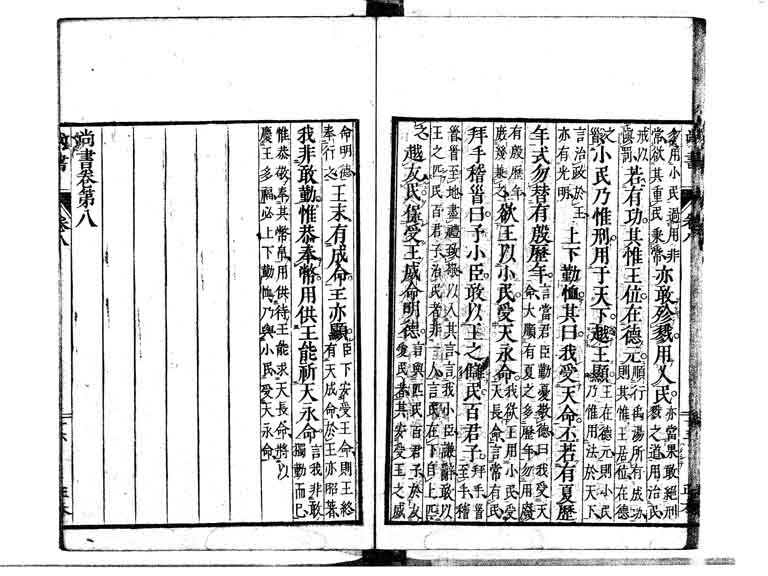 多用小民過用非
常欲其重民秉常
亦敢殄戮用乂民
亦當果敢絕刑
戮之道用治民
戒以
慎罰
若有功其惟王位在德元
順行禹湯所有成功
則其惟王居位在德
之
首
小民乃惟刑用于天下越王顯
王在德元則小民
乃惟用法於天下
言治政於王
亦有光明
上下勤恤其曰我受天命丕若有夏歷
年式勿替有殷歷年
言當君臣勤憂敬德曰我受天
命大順有夏之多歷年勿用廢
有殷歷年
庶幾兼之
欲王以小民受天永命
我欲王用小民受
天長命言常有民
拜手稽首曰予小臣敢以王之讎民百君子
拜手首
至手稽
首首至地盡禮致敬以入其言言我小臣謙辭敢以
王之匹民百君子治民者非一人言民在下自上匹
之
越友民保受王威命明德
言與匹民百君子於友
愛民者其安受王之威
命明德
奉行之
王末有成命王亦顯
臣下安受王命則王終
有天成命於王亦昭著
我非敢勤惟恭奉幣用供王能祈天永命
言我非敢
獨勤而已
惟恭敬奉其幣帛用供待王能求天長命將以
慶王多福必上下勤恤乃與小民受天永命
尚書卷第八